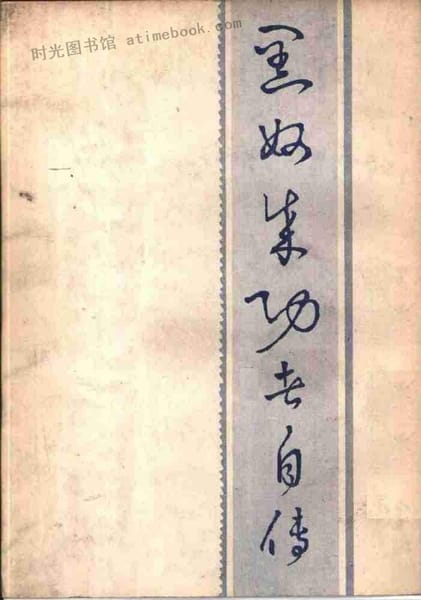 时光图书馆 atimebook.com
黑奴成功者自传